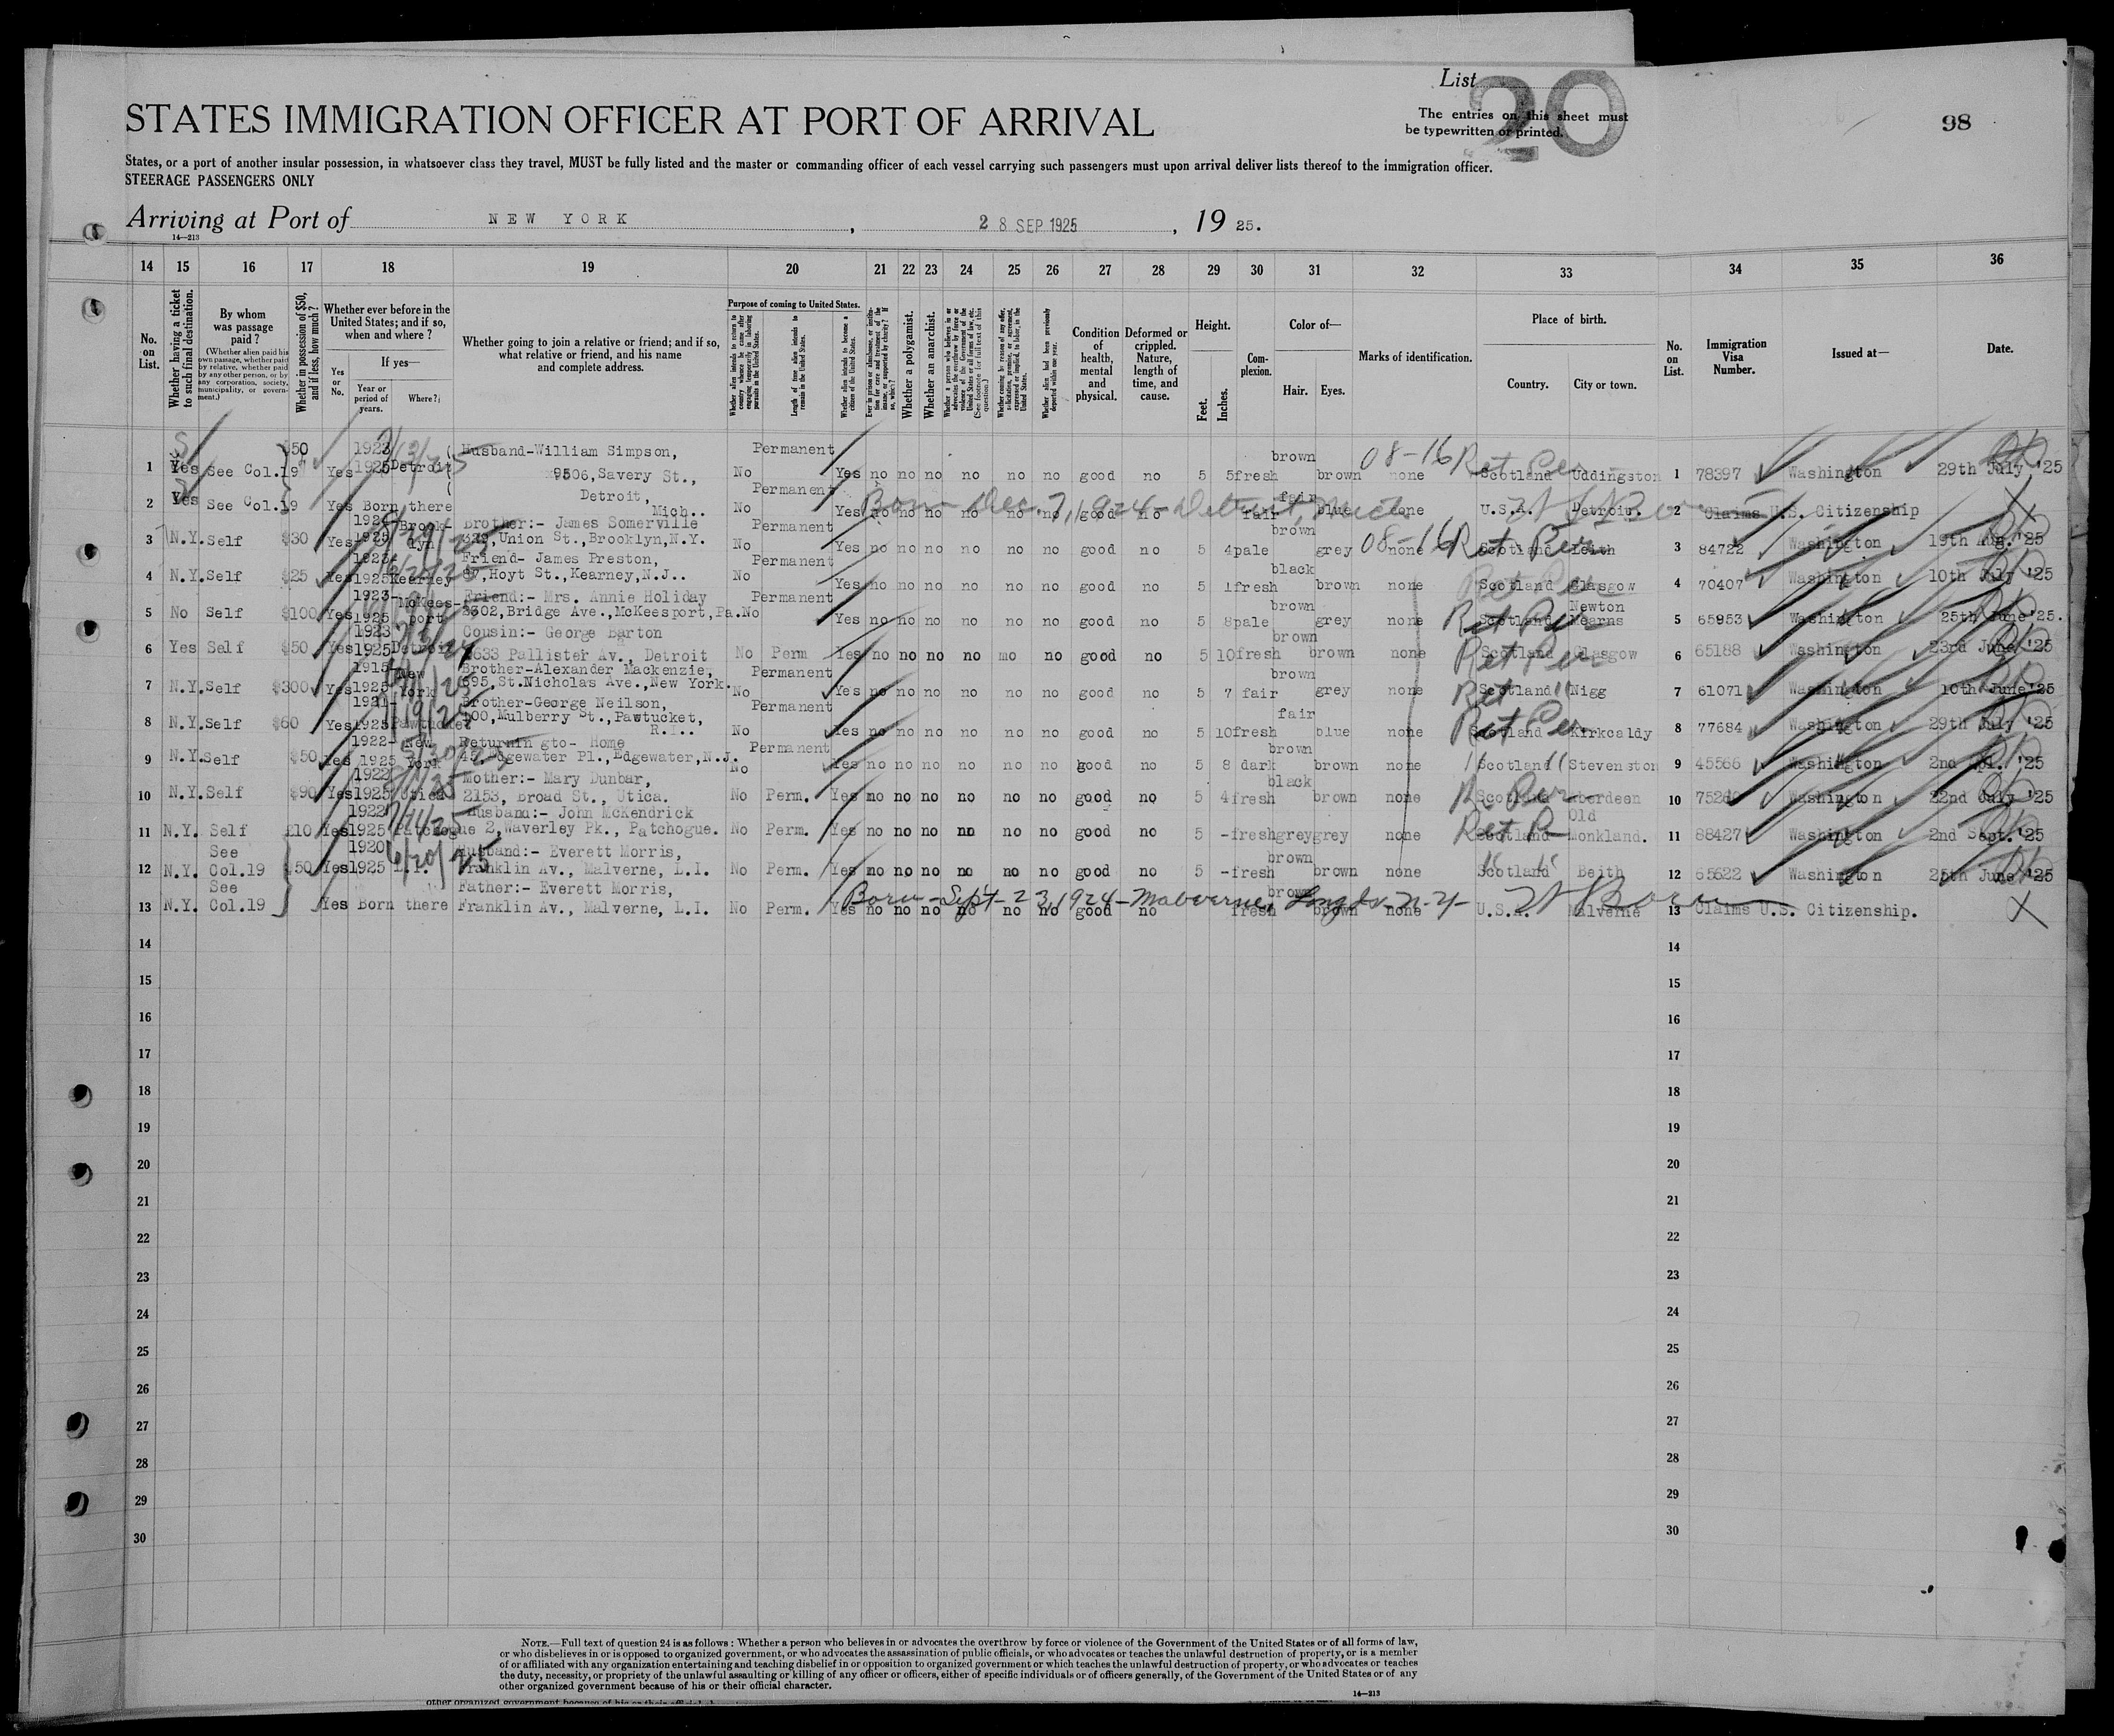 List 20
STATES IMMIGRATION OFFICER AT PORT OF ARRIVAL
The entries on this sheet must
be typewritten or printed.
98
States, or a port of another insular possession, in whatsoever class they travel, MUST be fully listed and the master or commanding officer of each vessel carrying such passengers must upon arrival deliver lists thereof to the immigration officer.
STEERAGE PASSENGERS ONLY
Arriving at Port of NEW YORK, 28 SEP 1925, 19 25.
14—213
14 15 16 17 18 19 20 21 22 23 24 25 26 27 28 29 30 31 32 33 34 35 36
No. on List.
Whether having a ticket to such final destination.
By whom was passage paid?
(Whether alien paid his own passage, whether paid by relative, whether paid by any other person, or by any corporation, society, municipality, or government.)
Whether in possession of $50, and if less, how much?
Whether ever before in the United States; and if so, when and where?
Yes or No.
If yes—
Year or period of years.
Where?
Whether going to join a relative or friend; and if so, what relative or friend, and his name and complete address.
Purpose of coming to United States.
Whether alien intends to return to country whence he came after engaging temporarily in laboring pursuits in the United States.
Length of time alien intends to remain in the United States.
Whether alien intends to become a citizen of the United States.
Ever in prison or almshouse, or institution for care and treatment of the insane, or supported by charity? If so, which?
Whether a polygamist.
Whether an anarchist.
Whether a person who believes in or advocates the overthrow by force or violence of the Government of the United States or all forms of law, etc. (See footnote for full text of this question.)
Whether coming by reason of any offer, solicitation, promise, or agreement, expressed or implied, to labor, in the United States.
Whether alien had been previously deported within one year.
Condition of health, mental and physical.
Deformed or crippled. Nature, length of time, and cause.
Height.
Feet.
Inches.
Complexion.
Color of—
Hair.
Eyes.
Marks of identification.
Place of birth.
Country.
City or town.
No. on List.
Immigration Visa Number.
Issued at—
Date.
1 Yes See Col.19 $50 Yes 1923 1925 Detroit Husband-William Simpson, 9506,Savery St., No Permanent Yes no no no no no no good no 5 5 fresh brown brown 08-16 none Ret Per Scotland Uddingston 1 78397 Washington 29th July '25
2 Yes See Col.19 Yes Born there Detroit, Mich.. No Permanent Yes no no no no no no good no fair fair blue none U.S.A. Detroit. 2 Claims U.S. Citizenship
Born - Dec. 7, 1924 - Detroit, Mich.
3 N.Y. Self $30 Yes 1924- 1925 Brooklyn Brother:- James Somerville Union St.,Brooklyn,N.Y. No Permanent Yes no no no no no no good no 5 4 pale brown grey 08-16 none Ret Per Scotland Leith 3 84722 Washington 19th Aug. '25
4 N.Y. Self $25 Yes 1923- 1925 Kearney Friend- James Preston, 87,Hoyt St.,Kearney,N.J.. No Permanent Yes no no no no no no good no 5 1 fresh black brown none Ret Per Scotland Glasgow 4 70407 Washington 10th July '25
5 No Self $100 Yes 1923- 1925 McKeesport Friend:- Mrs. Annie Holiday 2302,Bridge Ave.,McKeesport,Pa. No Permanent Yes no no no no no no good no 5 8 pale brown grey none Ret Per Scotland Newton Mearns 5 65953 Washington 25th June '25.
6 Yes Self $50 Yes 1923 1925 Detroit Cousin:- George Barton 1633 Pallister Av., Detroit No Perm Yes no no no no mo no good no 5 10 fresh brown brown none Ret Per Scotland Glasgow 6 65188 Washington 23rd June '25
7 N.Y. Self $300 Yes 1915- 1925 New York Brother-Alexander Mackenzie, 695,St.Nicholas Ave.,New York. No Permanent Yes no no no no no no good no 5 7 fair brown grey none Ret " Scotland Nigg 7 61071 Washington 10th June '25
8 N.Y. Self $60 Yes 1921- 1925 Pawtucket Brother-George Neilson, 100,Mulberry St.,Pawtucket, R.I.. No Permanent Yes no no no no no no good no 5 10 fresh fair blue none Ret Per Scotland Kirkcaldy 8 77684 Washington 29th July '25
9 N.Y. Self $50 Yes 1922- 1925 New York Returnin gto- Home 45,Edgewater Pl.,Edgewater,N.J. No Permanent Yes no no no no no no good no 5 8 dark brown brown none " " Scotland Stevenston 9 45566 Washington 2nd '25
10 N.Y. Self $90 Yes 1922 1925 Utica Mother:- Mary Dunbar, 2153, Broad St., Utica. No Perm. Yes no no no no no no good no 5 4 fresh black brown none Scotland Aberdeen 10 Washington 22nd July '25
11 N.Y. Self £10 Yes 1922 1925 Patchogue Husband:- John McKendrick 2,Waverley Pk., Patchogue. No Perm. Yes no no no no no no good no 5 - fresh grey grey none Scotland Old Monkland. 11 88427 Washington 2nd Sept.'25
12 N.Y. See Col.19 $50 Yes 1920 1925 L.I. 6/20/25 Husband:- Everett Morris, Franklin Av., Malverne, L.I. No Perm. Yes no no no no no no good no 5 - fresh brown brown none " " Scotland Beith 12 65622 Washington 25th June '25
13 N.Y. See Col.19 Yes Born there Father:- Everett Morris, Franklin Av., Malverne, L.I. No Perm. Yes no no no no no no good no fresh brown brown none U.S.A. Malverne 13 Claims U.S. Citizenship.
Born - Sept - 23, 1924 - Malverne, Long Is - N.Y -
14 14
15 15
16 16
17 17
18 18
19 19
20 20
21 21
22 22
23 23
24 24
25 25
26 26
27 27
28 28
29 29
30 30
NOTE.—Full text of question 24 is as follows: Whether a person who believes in or advocates the overthrow by force or violence of the Government of the United States or of all forms of law,
or who disbelieves in or is opposed to organized government, or who advocates the assassination of public officials, or who advocates or teaches the unlawful destruction of property, or is a member
of or affiliated with any organization entertaining and teaching disbelief in or opposition to organized government or which teaches the unlawful destruction of property, or who advocates or teaches
the duty, necessity, or propriety of the unlawful assaulting or killing of any officer or officers, either of specific individuals or of officers generally, of the Government of the United States or of any
other organized government because of his or their official character.
14—213